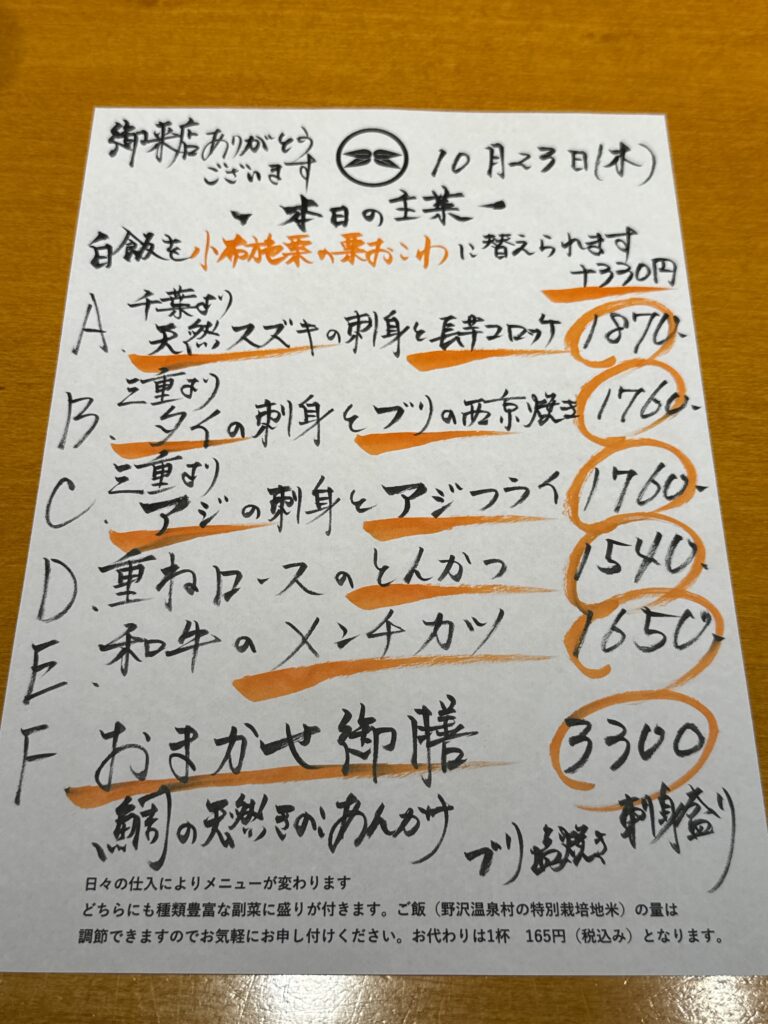 御来店ありがとう
ございます
10月23日(木)
本日の主菜
白飯を小布施栗の栗おこわに替えられます
+330円
千葉より
A. 天然スズキの刺身と長芋コロッケ 1870-
三重より
B. タイの刺身とブリの西京焼き 1760-
三重より
C. アジの刺身とアジフライ 1760-
D. 重ねロースのとんかつ 1540-
E. 和牛のメンチカツ 1650-
F. おまかせ御膳 3300
鯛の天然きのこあんかけ ブリ塩焼き 刺身盛り
日々の仕入によりメニューが変わります
どちらにも種類豊富な副菜に盛りが付きます。ご飯（野沢温泉村の特別栽培地米）の量は
調節できますのでお気軽にお申し付けください。お代わりは1杯 165円（税込み）となります。